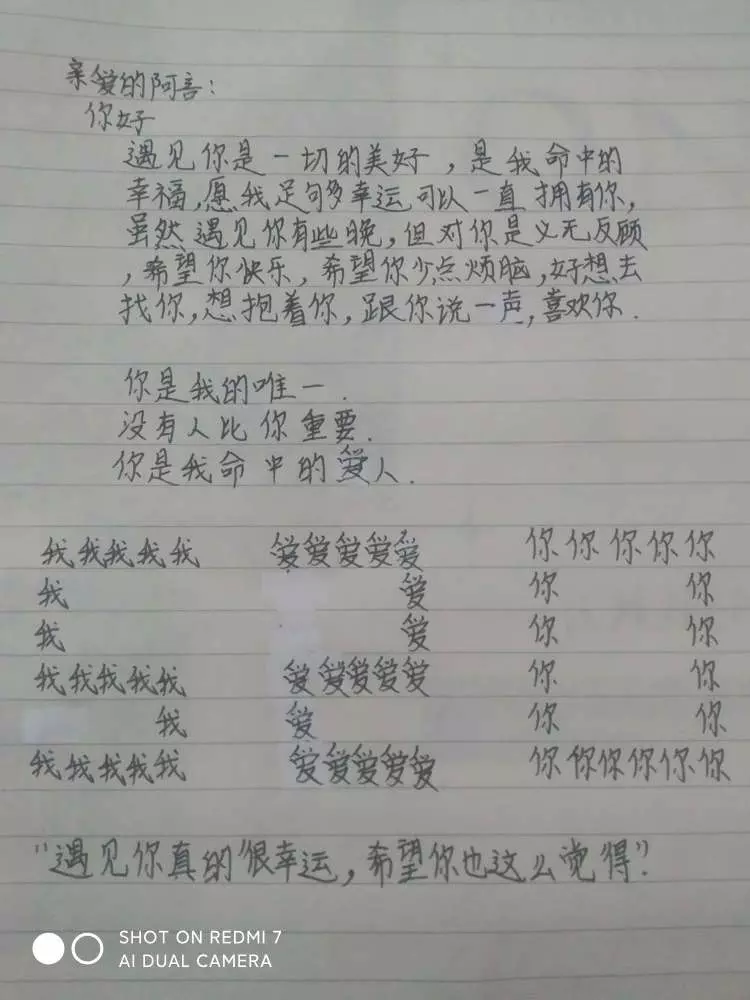 亲爱的阿言：
你好
遇见你是一切的美好，是我命中的
幸福，愿我足够幸运可以一直拥有你，
虽然遇见你有些晚，但对你是义无反顾
，希望你快乐，希望你少点烦脑，好想去
找你，想抱着你，跟你说一声，喜欢你．
你是我的唯一．
没有人比你重要．
你是我命中的爱人．
我我我我我 爱爱爱爱爱 你你你你你
我 爱 你 你
我 爱 你 你
我我我我我 爱爱爱爱爱 你 你
我 爱 你 你
我我我我我 爱爱爱爱爱 你你你你你你
“遇见你真的很幸运，希望你也这么觉得”．
SHOT ON REDMI 7
AI DUAL CAMERA